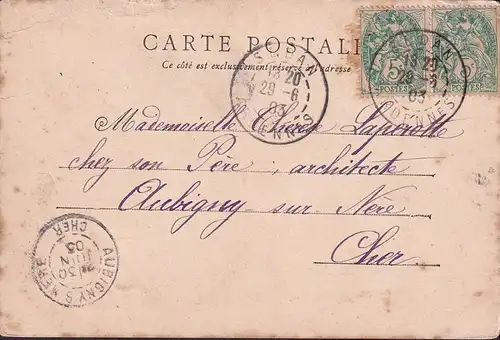 CARTE POSTALE
Ce côté est exclusivement réservé à l'adresse
18 20
29 -6
03
5
POSTES
18 20
29 -6
03
Mademoiselle Thérèse Laperotte
chez son Père, architecte
Aubigny-sur-Nère
Cher
AUBIGNY S NERE
30
JUIN
03
CHER